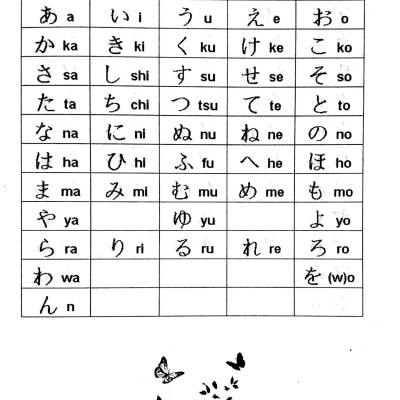 あ a い i う u え e お o
か ka き ki く ku け ke こ ko
さ sa し shi す su せ se そ so
た ta ち chi つ tsu て te と to
な na に ni ぬ nu ね ne の no
は ha ひ hi ふ fu へ he ほ ho
ま ma み mi む mu め me も mo
や ya ゆ yu よ yo
ら ra り ri る ru れ re ろ ro
わ wa を (w)o
ん n